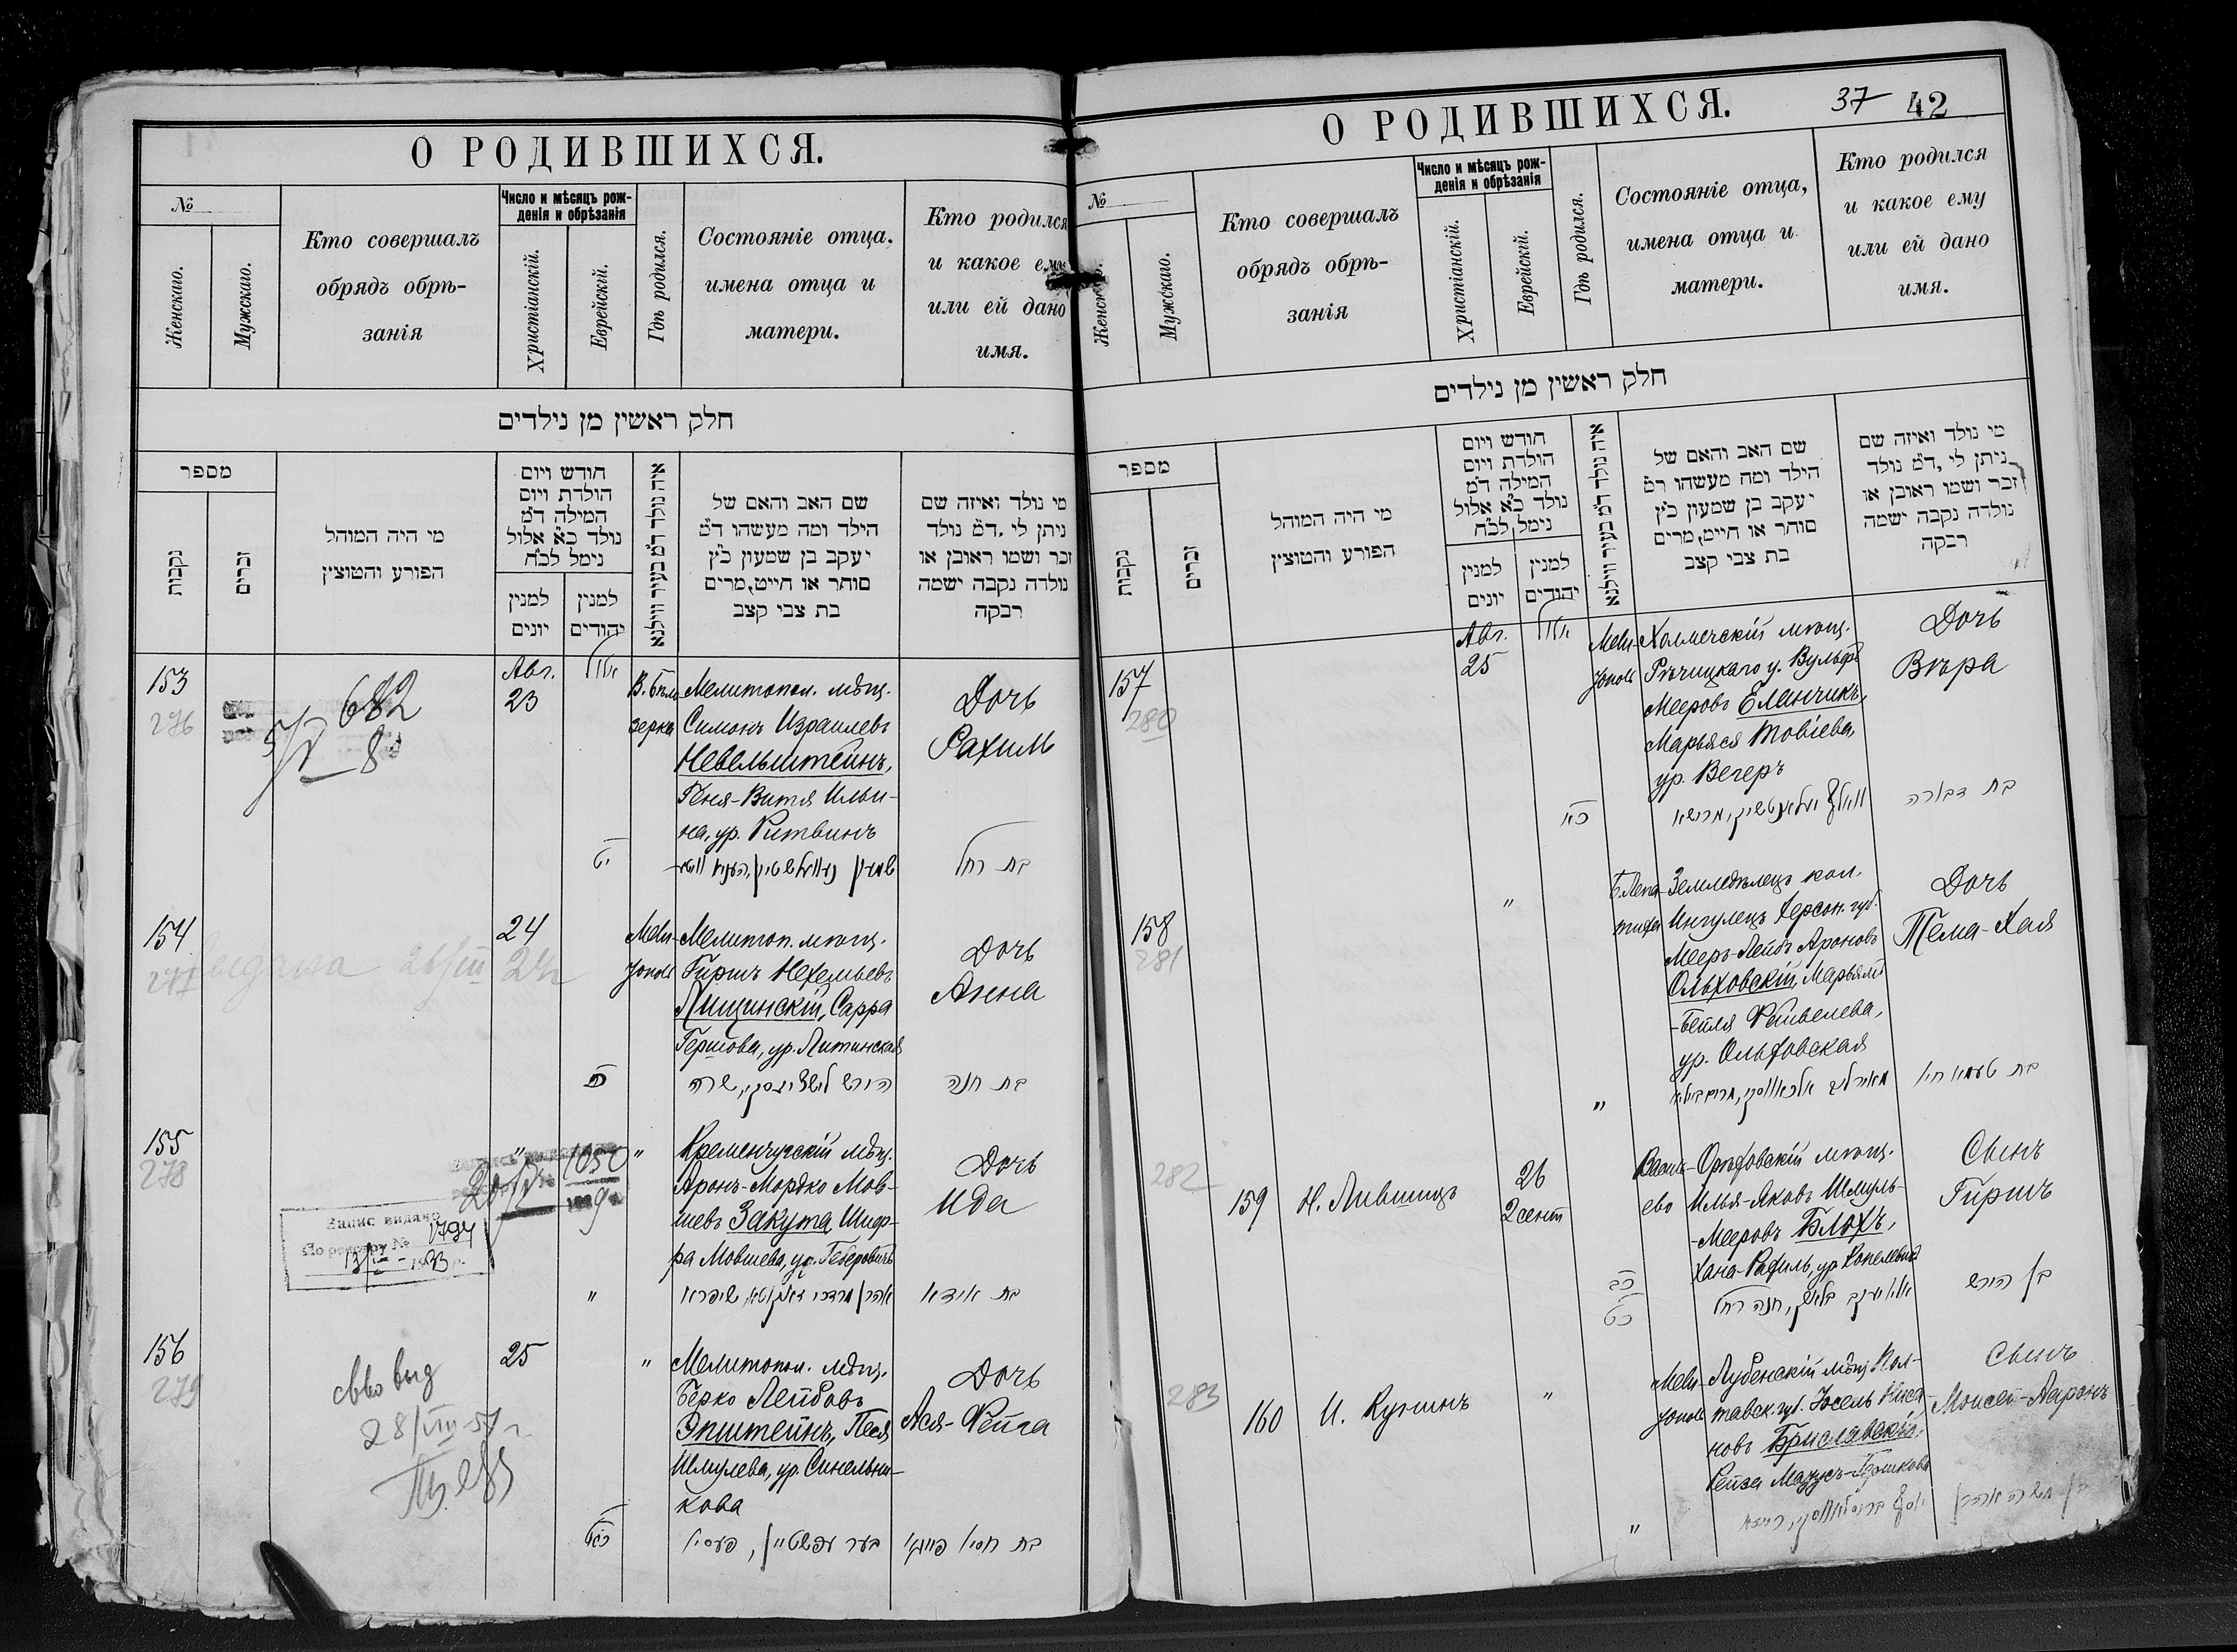 О РОДИВШИХСЯ.
№
Женскаго.
Мужскаго.
Кто совершалъ
обрядъ обрѣ-
занія
Число и мѣсяцъ рож-
денія и обрѣзанія
Христіанскій.
Еврейскій.
Гдѣ родился.
Состояніе отца.
имена отца и
матери.
Кто родился
и какое ему
или ей дано
имя.
חלק ראשין מן נילדים
מספר
נקבות
זכרים
מי היה המוהל
הפורע והטוצץ
חודש ויום
הולדת ויום
המילה ד״מ
נולד כ״א אלול
נימל לכ״ח
למנין
יונים
למנין
יהודים
איה נולד ד״מ בעיר ווילנא
שם האב והאם של
הילד ומה מעשהו ד״מ
יעקב בן שמעון כ״ץ
סוחר או חייט, מרים
בת צבי קצב
מי נולד ואיזה שם
ניתן לי .ד״מ נולד
זכר ושמו ראובן או
נולדה נקבה ישמה
רבקה
153
276
682
Авг.
23
אלול
В. Бѣло
зерка
Мелитопол. мѣщ.
Симонъ Израилевъ
Невельштейнъ,
Геня-Витя Ильи-
на, ур. Ритвинъ
Дочь
Рахиль
יט
בת רחל
154
277
24
Мели-
тополь
Мелитоп. мѣщ.
Гиршъ Нехемьевъ
Лищинскій, Сарра
Гершова, ур. Литинская
Дочь
Анна
כ
בת חנה
155
278
"
1050
Запис видано
По реєстру № 1794
"
Кременчугскій мѣщ.
Аронъ-Мордко Мов-
шевъ Закута, Шиф-
ра Мовшева, ур.
Дочь
Ида
"
אהרן מרדכי זאקוטא, שיפרא
בת אידא
156
279
св-во выд
28/VIII-57 г.
25
"
Мелитопол. мѣщ.
Берко Лейбовъ
Эпштейнъ, Песя
Шмулева, ур. Синельни-
кова
Дочь
Ася-Фейга
כא
בער עפשטיין, פעסיא
О РОДИВШИХСЯ.
37
42
№
Женскаго.
Мужскаго.
Кто совершалъ
обрядъ обрѣ-
занія
Число и мѣсяцъ рож-
денія и обрѣзанія
Христіанскій.
Еврейскій.
Гдѣ родился.
Состояніе отца,
имена отца и
матери.
Кто родился
и какое ему
или ей дано
имя.
חלק ראשין מן נילדים
מספר
נקבות
זכרים
מי היה המוהל
הפורע והטוצץ
חודש ויום
הולדת ויום
המילה ד״מ
נולד כ״א אלול
נימל לכ״ח
למנין
יונים
למנין
יהודים
איה נולד ד״מ בעיר ווילנא
שם האב והאם של
הילד ומה מעשהו ד״מ
יעקב בן שמעון כ״ץ
סוחר או חייט, מרים
בת צבי קצב
מי נולד ואיזה שם
ניתן לי ,ד״מ נולד
זכר ושמו ראובן או
נולדה נקבה ישמה
רבקה
157
280
Авг.
25
אלול
Мели-
тополь
Холмечскій мѣщ.
Рѣчицкаго у. Вульфъ
Мееровъ Еланчикъ,
Марьяся Товіева,
ур. Вегеръ
Дочь
Вѣра
כא
בת דבורה
158
281
"
Б. Лепа-
тиха
Земледѣлецъ кол.
Ингулецъ Херсон. губ.
Мееръ-Лейбъ Ароновъ
Ольховскій, Марьямъ
-Бейля Фейвелева,
ур. Ольховская
Дочь
Тема-Хая
"
בת טעמא חיא
282
159
Н. Лившицъ
26
2 сент
Василь-
ево
Орѣховскій мѣщ.
Илья-Яковъ Шмуль-
-Мееровъ Блохъ,
Хана-Рахиль, ур. Копелевичъ
Сынъ
Гиршъ
כב
כט
בן הירש
283
160
И. Кугинъ
"
Мели-
тополь
Лубенскій мѣщ. Пол-
тавск. губ. Іосель
новъ Бриславскій,
Рейза
Сынъ
Моисей-Ааронъ
"
בן משה אהרן